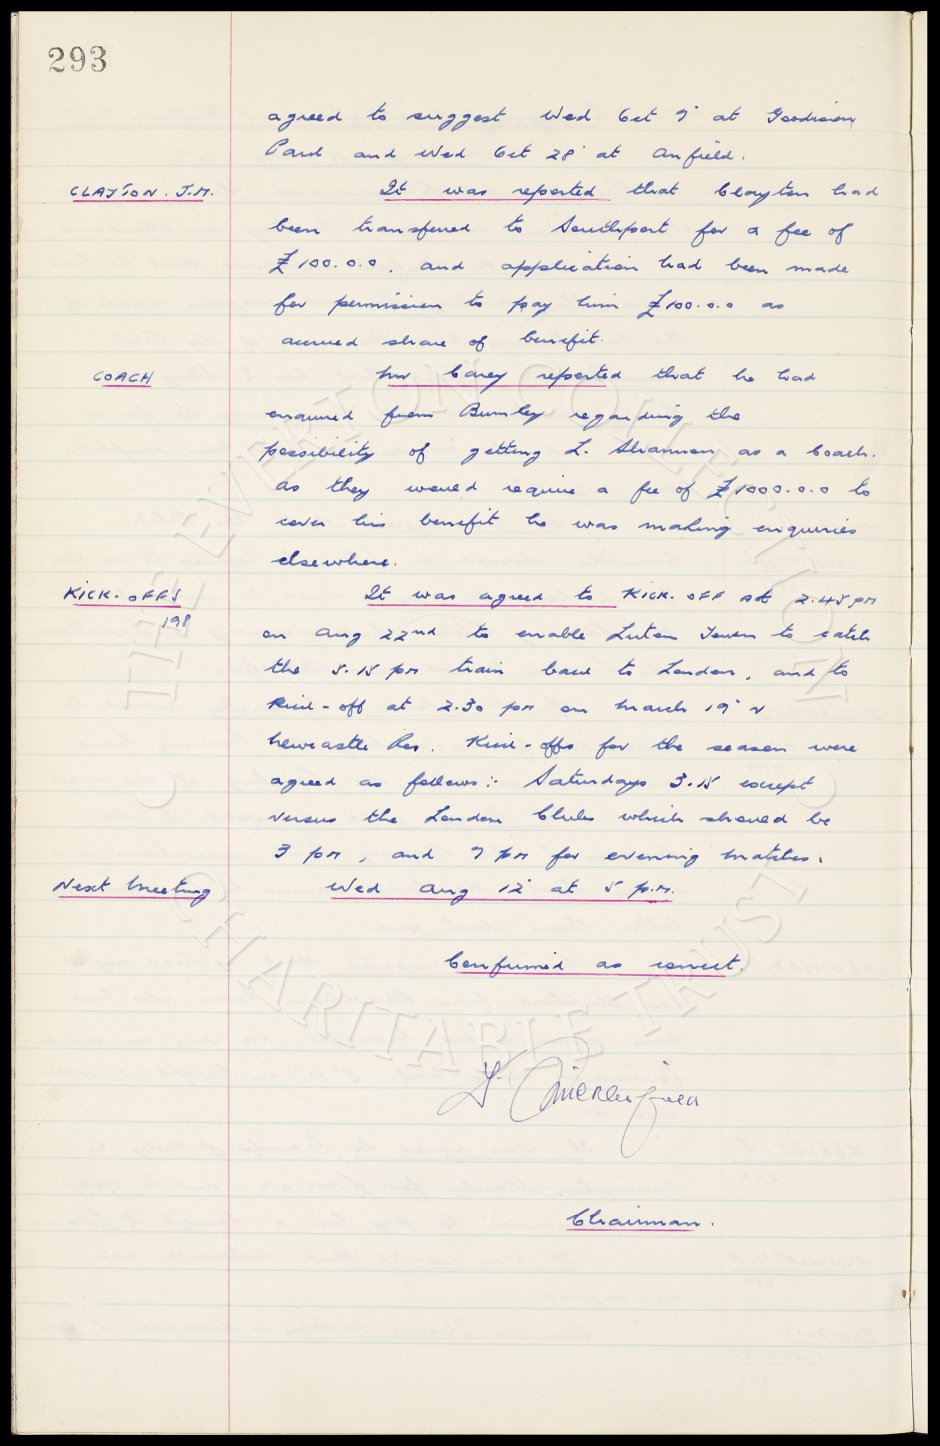 293
agreed to suggest Wed Oct 7th at Goodison
Park and Wed Oct 28th at Anfield.
CLAYTON. J.M. It was reported that Clayton had
been transferred to Southport for a fee of
£100.0.0, and application had been made
for permission to pay him £100.0.0 as
accrued share of benefit.
COACH Mr Carey reported that he had
enquired from Burnley regarding the
possibility of getting L. Shannon as a Coach.
As they would require a fee of £1000.0.0 to
cover his benefit he was making enquiries
elsewhere.
KICK-OFFS It was agreed to KICK-OFF at 2.45 pm
198
on Aug 22nd to enable Luton Town to catch
the 5.15 pm train back to London, and to
Kick-off at 2.30 pm on March 19th v
Newcastle Res. Kick-offs for the season were
agreed as follows:- Saturdays 3.15 except
versus the London Clubs which should be
3 pm, and 7 pm for evening matches.
Next Meeting Wed Aug 12th at 5 p.m.
Confirmed as correct.
Chairman.
THE EVERTON COLLECTION
CHARITABLE TRUST